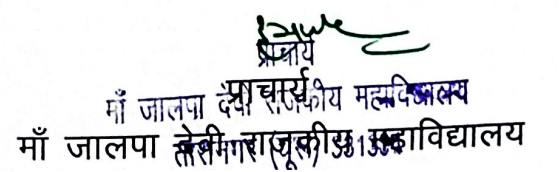 प्राचार्य
प्राचार्य
माँ जालपा देवी राजकीय महाविद्यालय
माँ जालपा देवी राजकीय महाविद्यालय
तारानगर (चूरू)